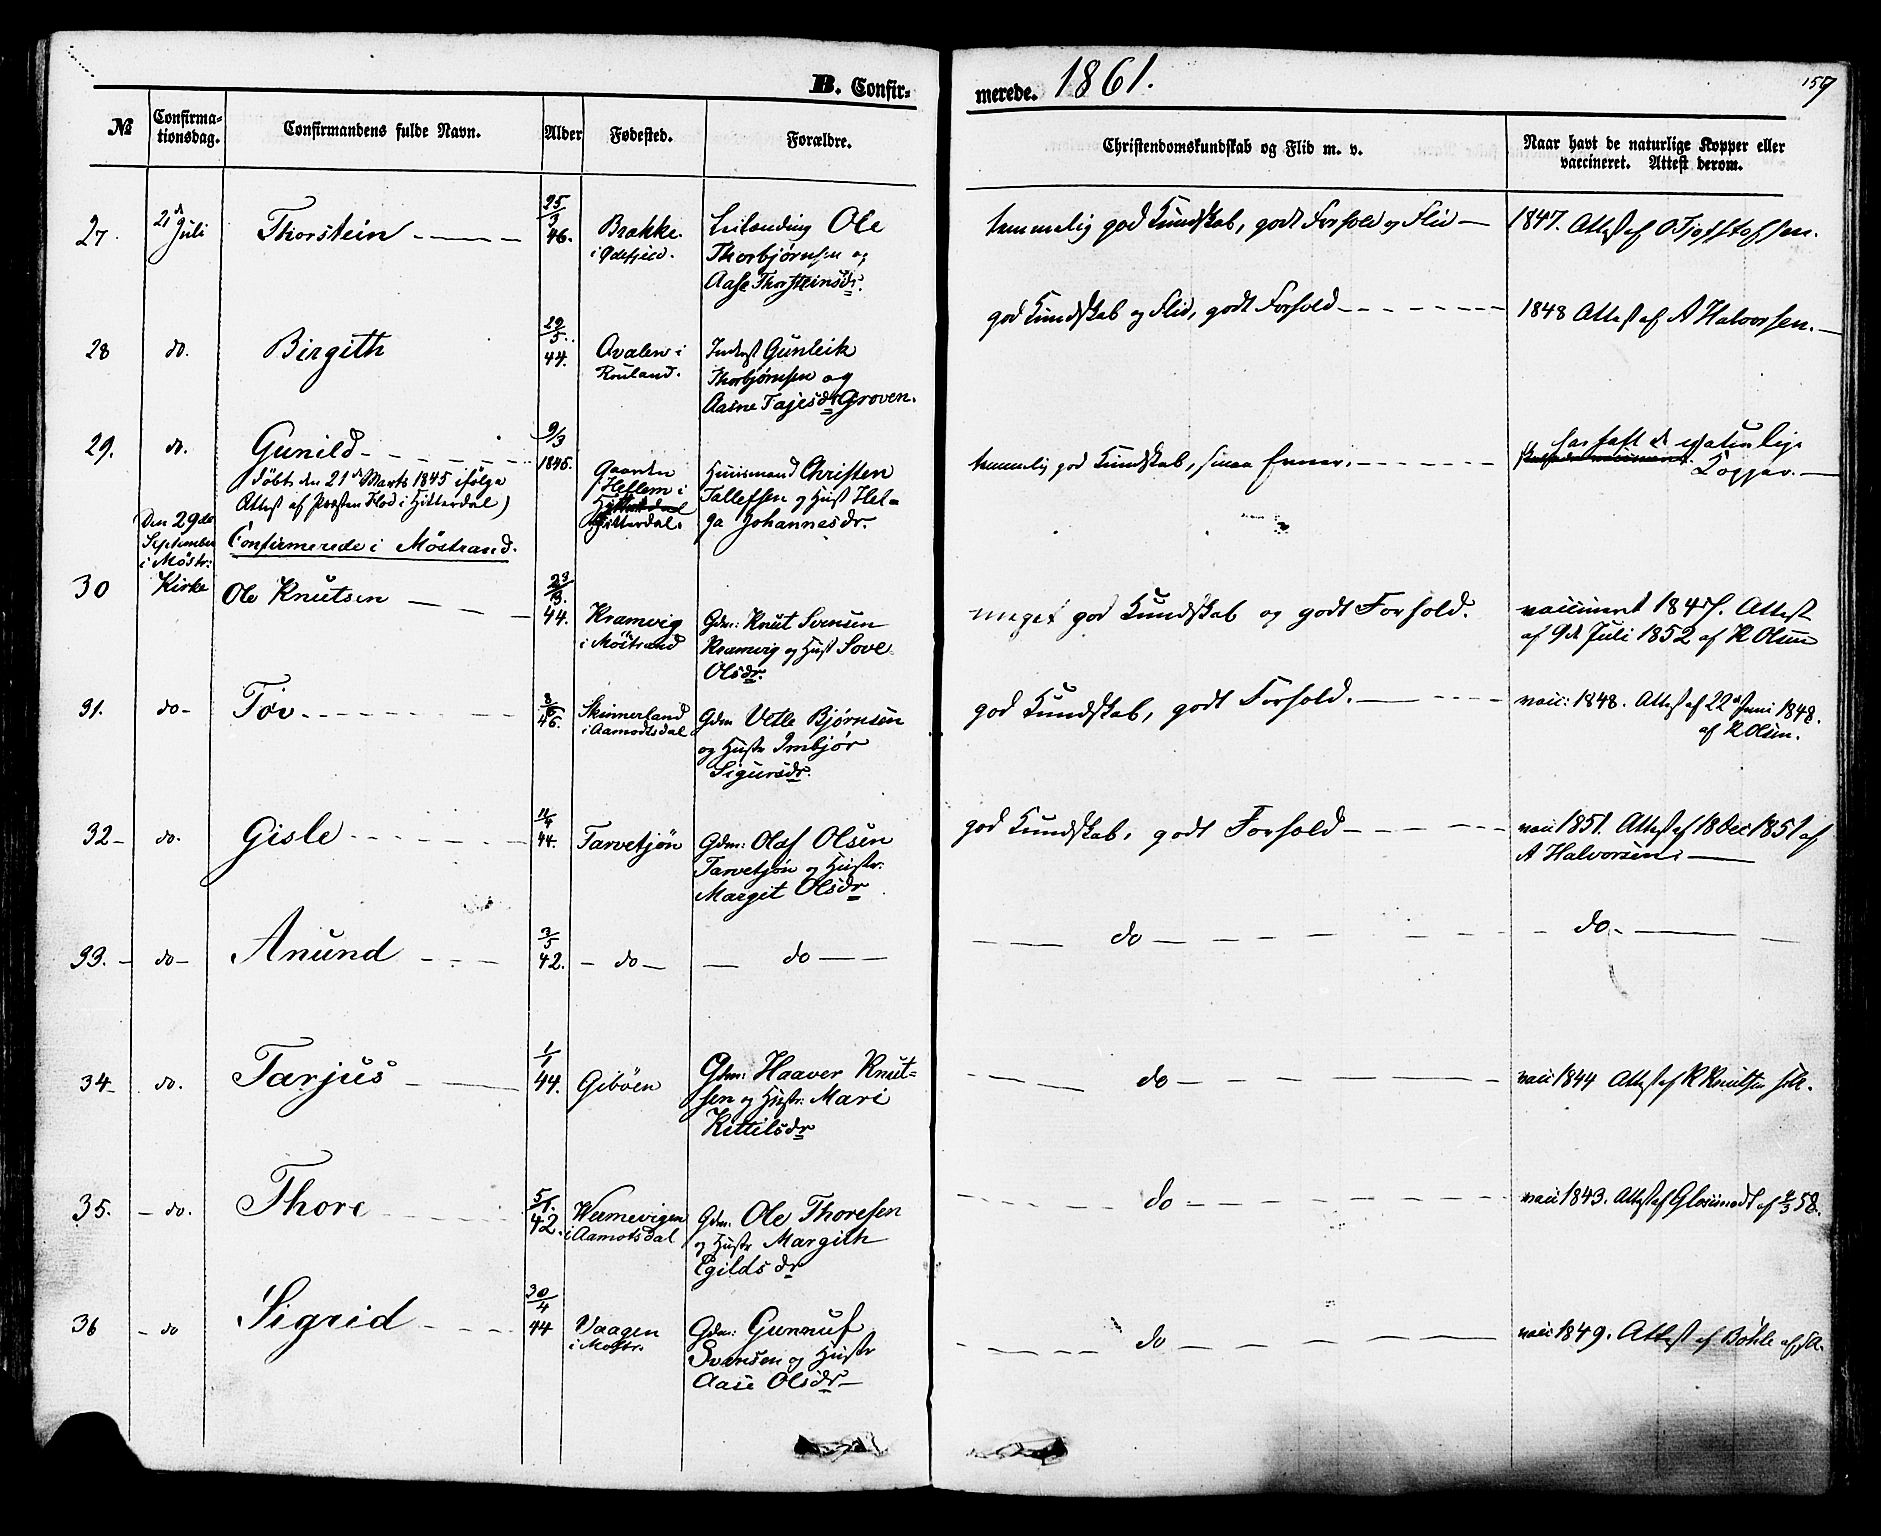 B. Confir-
merede. 1861.
159
№
Confirma-
tionsdag.
Confirmandens fulde Navn.
Alder
Fødested.
Forældre.
Christendomskundskab og Flid m. v.
Naar havt de naturlige Kopper eller
vaccineret. Attest derom.
27. 21 d Juli Thorstein
25/3 46.
Brakke
Leilending Ole
Thorbjørnsen og
Aase Thorsteinsdr.
temmelig god Kundskab, godt Forhold og Flid
1847. Attest af
28 do. Birgith
29/5 44.
Avalen i
Rauland.
Inderst Gunleik
Thorbjørnsen og
Aasne Tajesdr Groven.
god Kundskab og Flid, godt Forhold
1848 Attest af A Halvorsen.
29. do. Gunild
døbt den 21de Marts 1845 ifølge
Attest af Præsten Flod i Hitterdal)
9/3 1845.
Gaarden
Heflem i
Hitterdal.
Huusmand Christen
Tallefsen og Hust Hel-
ga Johannesdr.
temmelig god Kundskab, smaa Evner.
har haft de naturlige
Kopper.
Den 29de
September
i Møstr:
Kirke
Confirmerede i Møstrand.
30 Ole Knutsen
44.
Kramvig
i Møstrand
Gdm: Knut Svensen
Kramvig og Hust Sove
Olsdr.
meget god Kundskab og godt Forhold.
vaccineret Attest
af 9de Juli 1852 af K Olsen
31. do Tov
46.
Skinnerland
i Aamodtsdal
Gdm Vetle Bjørnsen
og Hustr Imbjør
Sigursdr.
god Kundskab, godt Forhold.
vacc: 1848. Attest af 22de Juni 1848.
af K Olsen.
32 do. Gisle
11/4 44.
Tarvetjøn
Gdm: Olaf Olsen
Tarvetjøn og Hustr.
Margit Olsdr
god Kundskab, godt Forhold
vacc 1851. Attest af 18 Dec 1851 af
A Halvorsen.
33. do Anund
3/5 42.
do
do
do
do
34 do. Tarjus
1/1 44.
Gibøen
Gdm: Haaver Knut-
sen og Hustr: Mari
Kittilsdr
do
vacc 1844 Attest af K Knutsen
35. do. Thore
5/1 42.
Wemevigen
i Aamotsdal
Gdm: Ole Thoresen
og Hustr Margith
Egildsdr
do
vacc 1843. Attest af
36 do Sigrid
30/4 44
Vaagen
i Møstr.
Gdm: Gunnuf
Svensen og Hustr
Aase Olsdr
do
vacc 1849. Attest af Bøhle